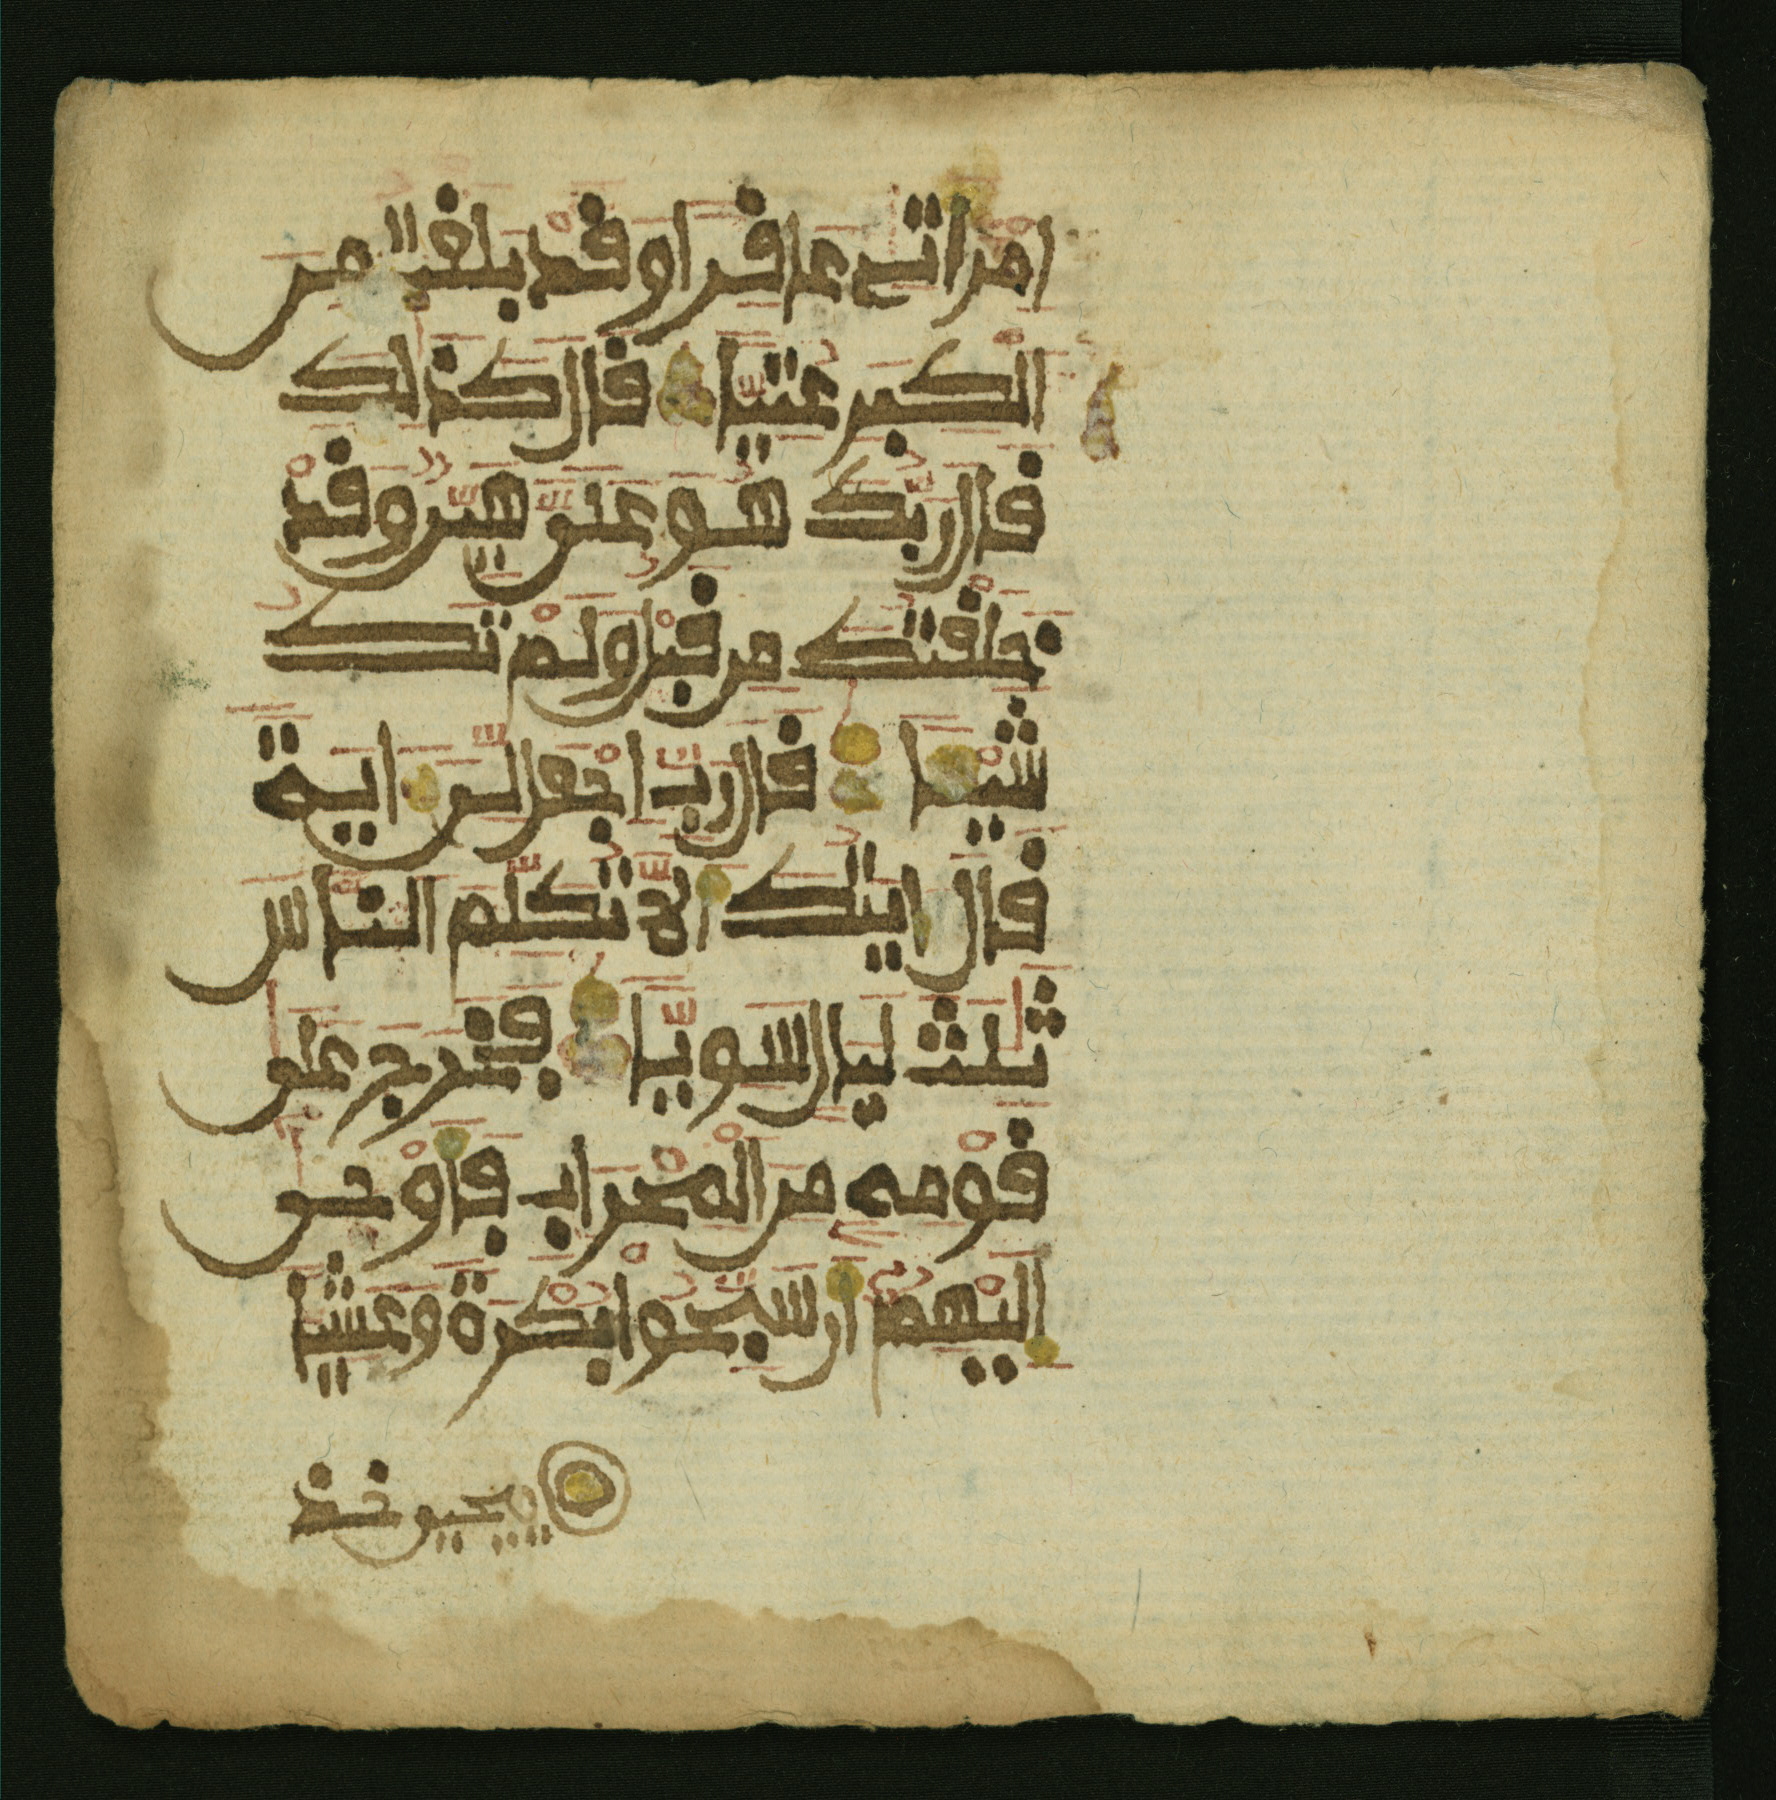 امراتي عاقرا وقد بلغت من
الكبر عتيا قال كذلك
قال ربك هو علي هين وقد
خلقتك من قبل ولم تك
شيئا قال رب اجعل لي اية
قال ايتك الا تكلم الناس
ثلث ليال سويا فخرج على
قومه من المحراب فاوحى
اليهم ان سبحوا بكرة وعشيا
ييحيى خذ